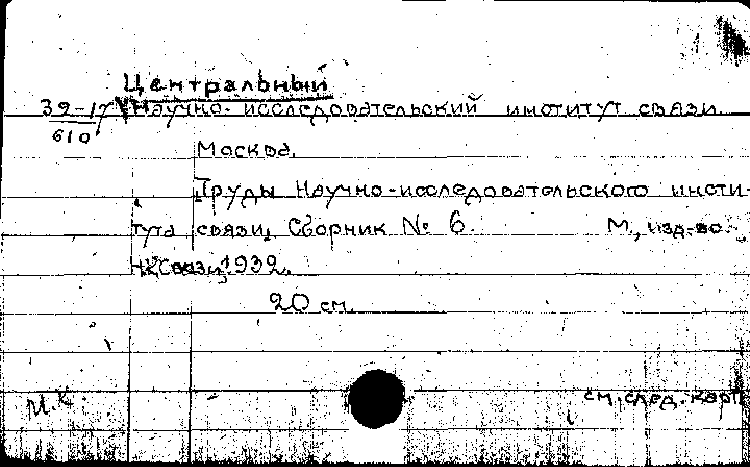 Центральный
39-17 Научно-исследовательский институт связи
610
Москва.
Труды Научно-исследовательского инсти-
тута связи, Сборник № 6. М., изд-во
НКСвязи, 1932.
20 см.
И.К.
см. след. карт